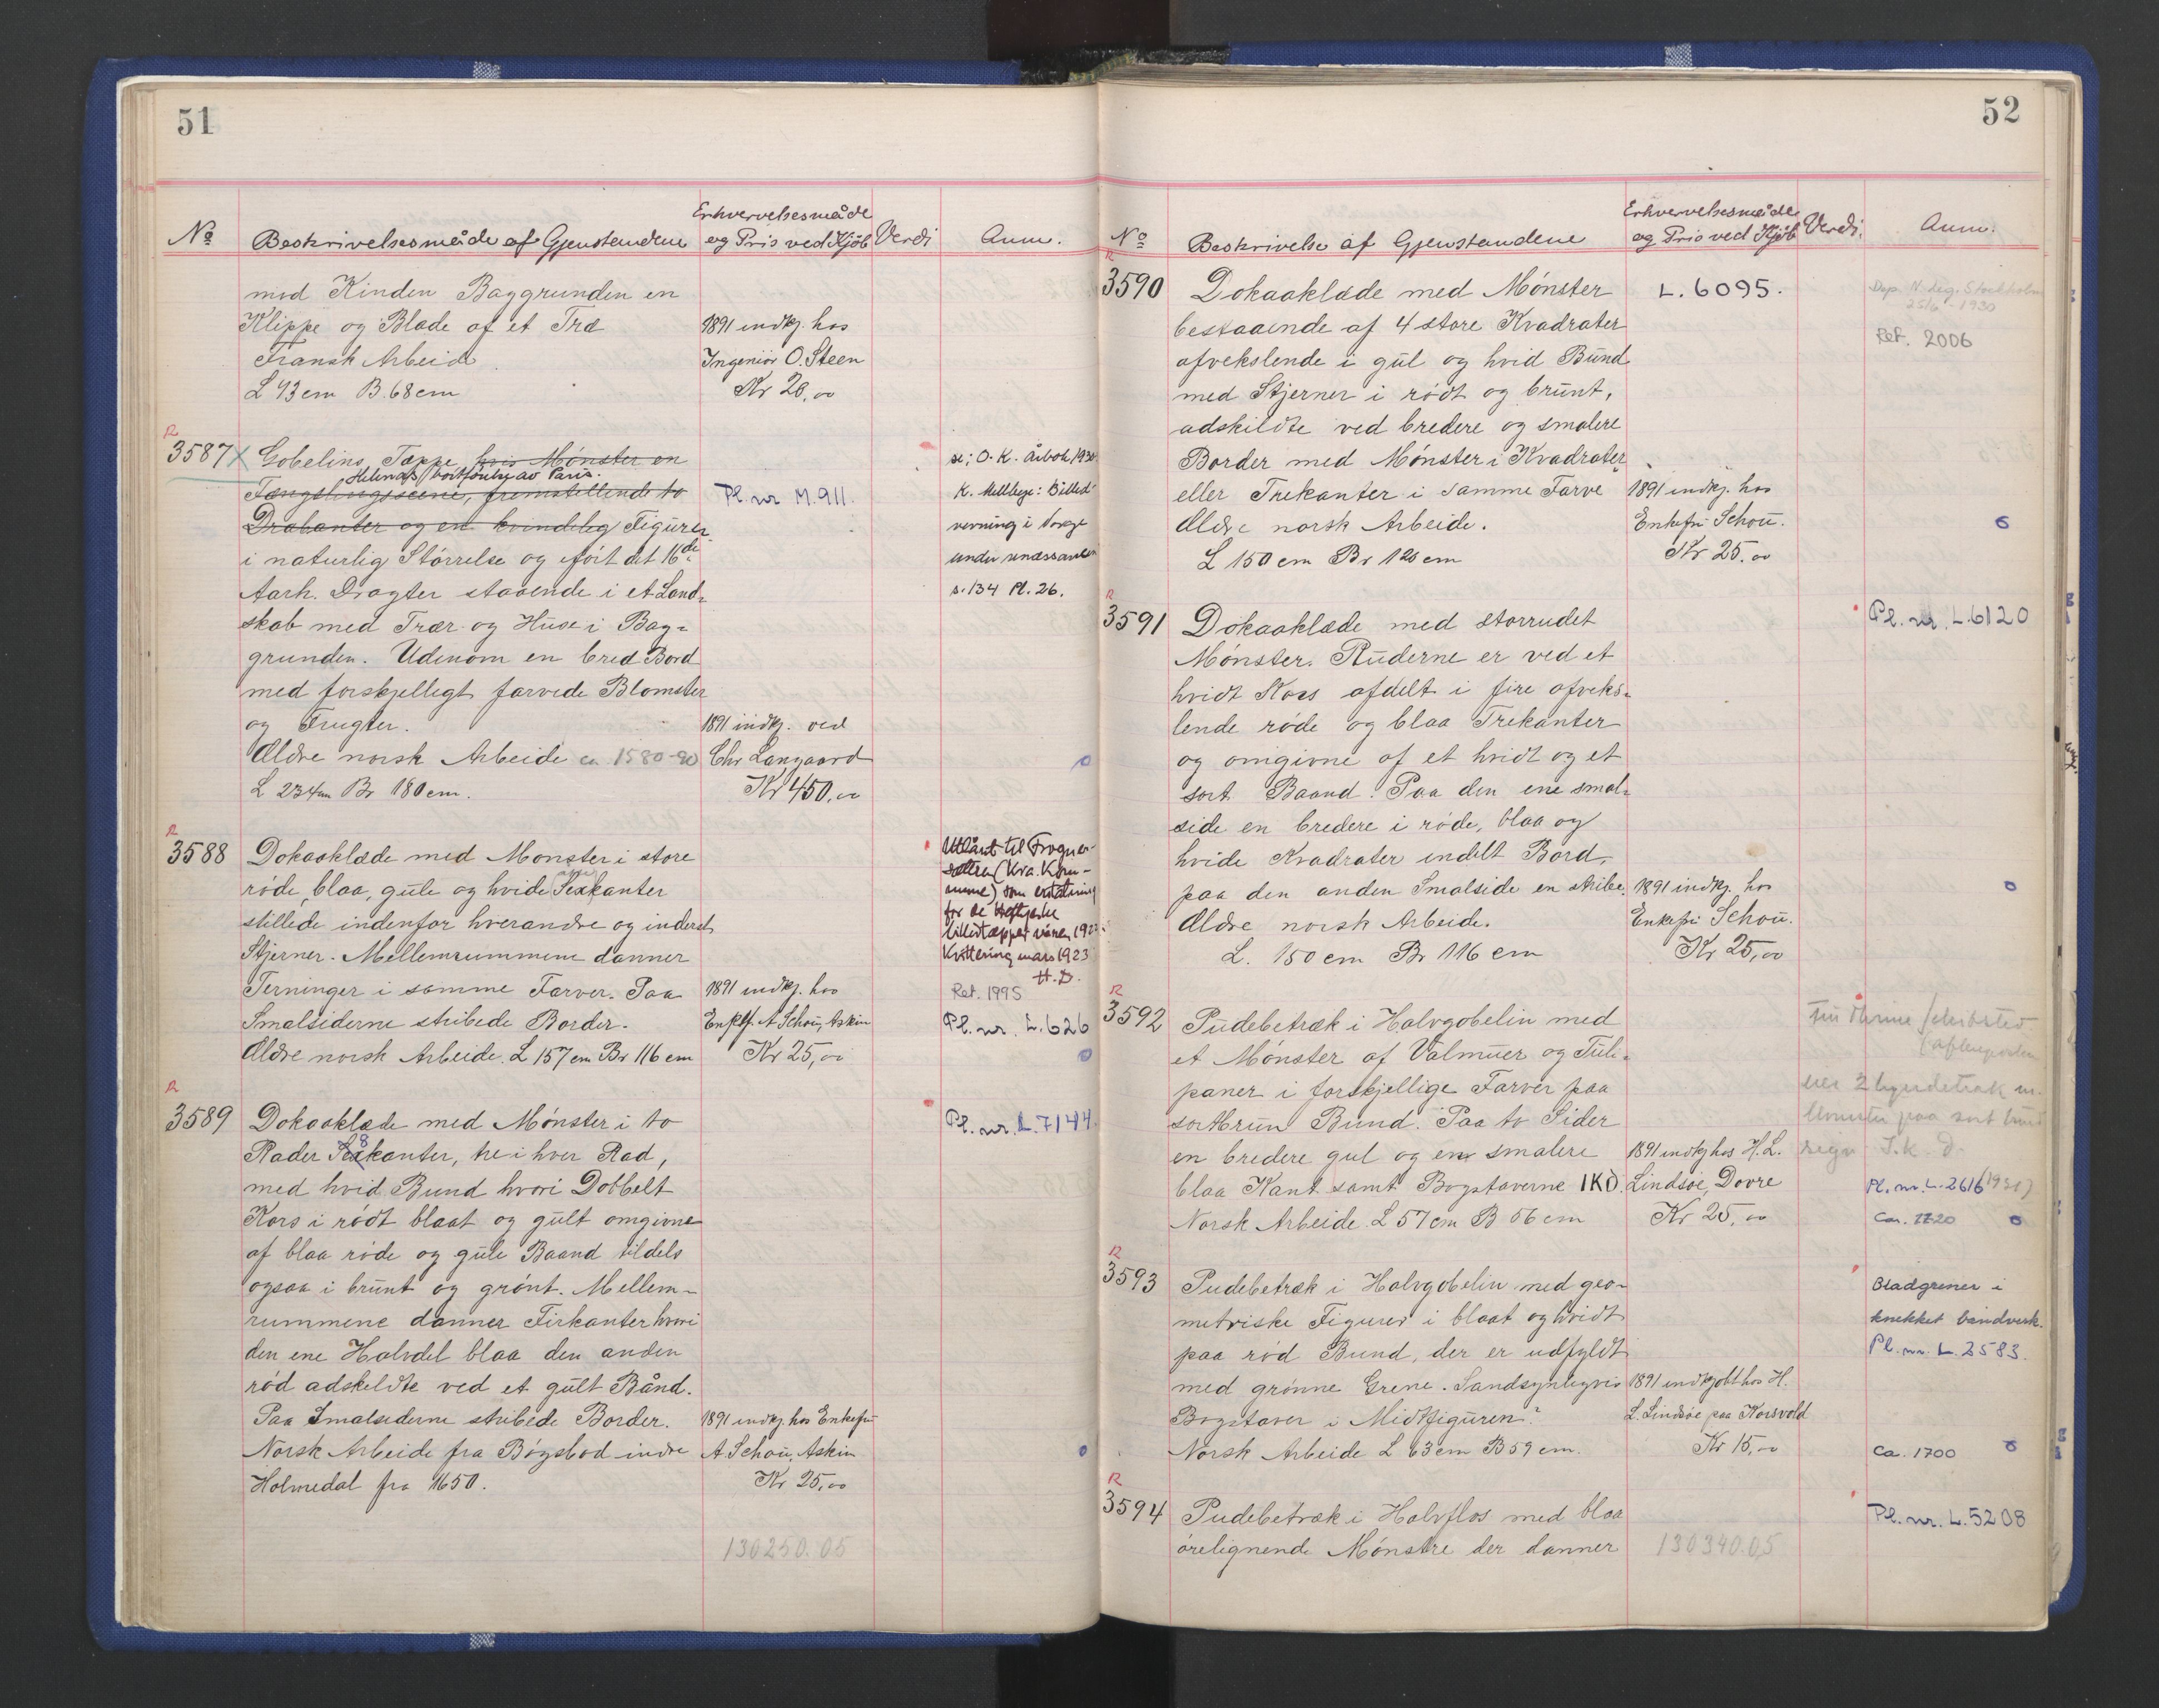 51
No Beskrivelsesmåde af Gjenstandene Erhvervelsesmåde og Pris ved Kjöb Verdi Anm.
mod Kinden Baggrunden en
Klippe og Blade af et Træ
Fransk Arbeide
L 93 cm B. 68 cm
1891 indkj. hos
Ingeniör O. Steen
Kr 20,00
R
3587 x Gobelins Tæppe hvis Mönster en
Helenas bortförelse av Paris.
Fængslingsscene, fremstillende to
Drabanter og en kvindelig Figurer
i naturlig Störrelse og iført det 16de
Aarh. Dragter staaende i et Land-
skab med Trær og Huse i Bag-
grunden. Udenom en bred Bord
med forskjelligt farvede Blomster
og Frugter.
Ældre norsk Arbeide ca 1580-90
L 234 cm Br 180 cm.
Pl. nr M. 911.
1891 indkj. ved
Chr Langaard
Kr 450,00
se; O. K. Årbok 1930
K. : Billed-
vevning i Norge
under renæssansen
s. 134 Pl. 26.
R
3588 Dokaaklæde med Mönster i store
röde, blaa, gule og hvide Sexkanter
stillede indenfor hverandre og inderst
Stjerner. Mellemrummene danner
Terninger i samme Farver. Paa
Smalsiderne stribede Border.
Ældre norsk Arbeide. L 157 cm Br 116 cm
1891 indkj. hos
Enkef. A Schou, Askin
Kr 25,00
Utlånt til Frogner-
sætren (Kra. Kom-
mune) som erstatning
for de
billedtæpper våren 1922
Kvittering mars 1923
H. D.
Ret. 1995
Pl. nr. L. 626
R
3589 Dokaaklæde med Mönster i to
Rader Sexkanter, tre i hver Rad,
8
med hvid Bund hvori Dobbelt
Kors i rödt blaat og gult omgivne
af blaa röde og gule Baand tildels
ogsaa i brunt og grönt. Mellem-
rummene danner Firkanter hvori
den ene Halvdel blaa den anden
röd adskildte ved et gult Bånd.
Paa Smalsiderne stribede Border.
Norsk Arbeide fra Bögsbod indre
Holmedal fra 1650.
1891 indkj. hos Enkefru
A. Schou, Askin
Kr 25,00
Pl. nr. L. 7144
130250.05
52
No Beskrivelse af Gjenstandene Erhvervelsesmåde og Pris ved Kjöb Verdi. Anm.
R
3590 Dokaaklæde med Mönster
bestaaende af 4 store Kvadrater
afvekslende i gul og hvid Bund
med Stjerner i rödt og brunt,
adskildte ved bredere og smalere
Border med Mönster i Kvadrater
eller Trekanter i samme Farve
Ældre norsk Arbeide.
L 150 cm Br 120 cm
L. 6095.
1891 indkj. hos
Enkefru Schou.
Kr 25.00
Dep. N. leg. Stockholm
25/6 1930
Ret. 2006
R
3591 Dokaaklæde med storrudet
Mönster. Ruderne er ved et
hvidt Kors afdelt i fire afveks-
lende röde og blaa Trekanter
og omgivne af et hvidt og et
sort Baand. Paa den ene smal-
side en bredere i röde, blaa og
hvide Kvadrater indelt Bord,
paa den anden Smalside en stribe.
Ældre norsk Arbeide.
L. 150 cm Br 116 cm
1891 indkj. hos
Enkefru Schou.
Kr 25,00
Pl. nr. L. 6120
R
3592 Pudebetræk i Halvgobelin med
et Mönster af Valmuer og Tuli-
paner i forskjellige Farver paa
sortbrun Bund. Paa to Sider
en bredere gul og en smalere
blaa Kant samt Bogstaverne IKD.
Norsk Arbeide L 57 cm B 56 cm
1891 indkj hos H. L.
Lindsöe, Dovre
Kr 25,00
Schibsted
(aftenposten
2 hyndetræk m.
blomster paa sort bund
I. K. D.
Pl. nr. L. 2616 (1931)
Ca. 1720
R
3593 Pudebetræk i Halvgobelin med geo-
metriske Figurer i blaat og hvidt
paa röd Bund, der er udfyldt
med grönne Grene. Sandsynligvis
Bogstaver i Midtfiguren?
Norsk Arbeide L 63 cm B 59 cm.
1891 indkjöbt hos H.
L. Lindsöe paa Korsvold
Kr 15,00
Bladgrener i
knekket båndverk.
Pl. nr. L. 2583.
Ca. 1700
R
3594 Pudebetræk i Halvflos med blaa
örelignende Mönstre der danner
Pl. nr. L. 5208
130340.05